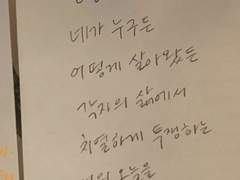 네가 누구든
어떻게 살아왔든
각자의 삶에서
치열하게 투쟁하는
오늘을